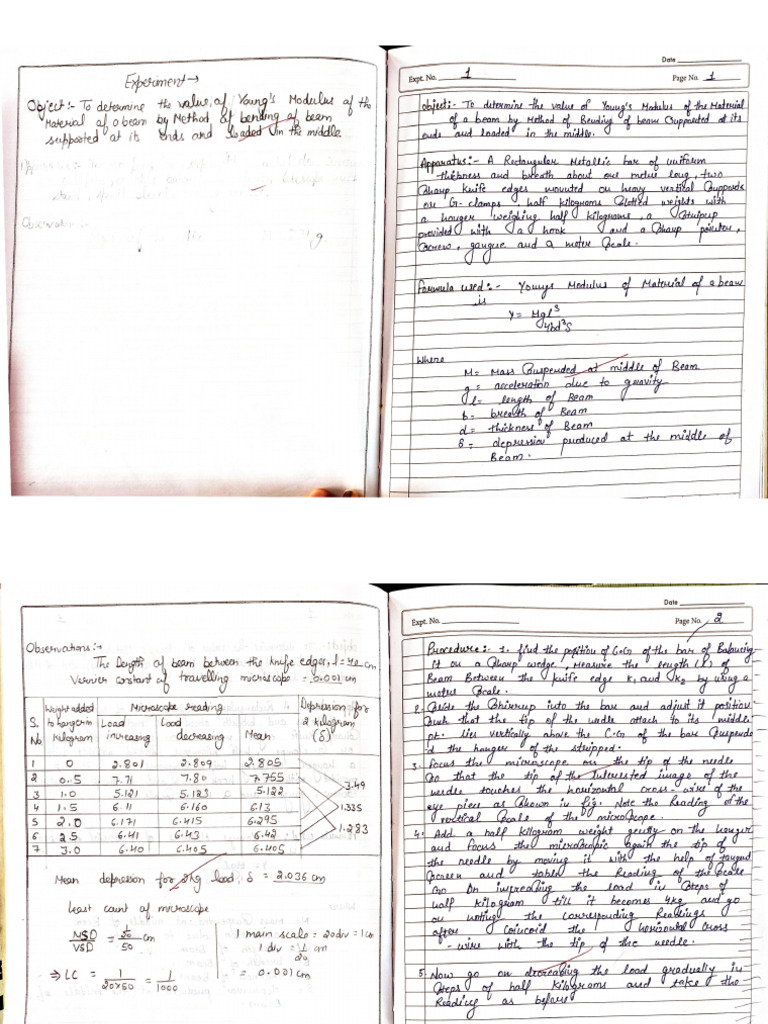 Experiment→
Object:- To determine the value of Young's Modulus of the
Material of a beam by Method of bending of beam
supported at its ends and loaded in the middle
Date
Expt. No. 1
Page No. 1
Object:- To determine the value of Young's Modulus of the Material
of a beam by Method of Bending of beam Supported at its
ends and loaded in the middle.
Apparatus:- A Rectangular Metallic bar of uniform
thickness and breath about one metre long, two
Sharp knife edges mounted on heavy vertical Supports
are G-clamps, half kilograms Slotted weights with
a hanger weighing half kilograms, a Stirrup
provided with a hook and a Sharp pointer,
Screw, gaugue and a meter Scale.
Formula used:- Youngs Modulus of Material of a beam
is
Y = Mgl³
4bd³δ
Where
M= Mass Suspended at middle of Beam
g = acceleration due to gravity
l = length of Beam
b = breath of Beam
d = thickness of Beam
δ = depression produced at the middle of
Beam.
Observations:-
The Length of beam between the knife edges, l = 40 cm
Vernier constant of travelling microscope = 0.001 cm
S. No. Weight added to hanger in kilogram Microscope reading Load increasing Load decreasing Mean Depression for 2 kilogram (δ)
1 0 2.801 2.809 2.805
2 0.5 7.71 7.80 7.755
3 1.0 5.121 5.123 5.122
4 1.5 6.11 6.160 6.13
5 2.0 6.171 6.415 6.295
6 2.5 6.41 6.43 6.42
7 3.0 6.40 6.405 6.405
3.49
1.335
1.283
Mean depression for 2kg load, δ = 2.036 cm
Least count of microscope
NSD/VSD = 1/20/50 cm
1 main scale = 20div = 1cm
1 div = 1/20 cm
⇒ LC = 1/20×50 = 1/1000
= 0.001cm
Date
Expt. No.
Page No. 2
Procedure:- 1. find the position of C.G of the bar of Balancing
it on a Sharp wedge, Measure the length (l) of
Beam Between the knife edge K₁ and K₂ by using a
metre Scale.
2. Slide the into the bar and adjust it position
Such that the tip of the attach to its middle
pt. lies vertically above the C.G of the bar Suspend
the hanger of the stripped.
3. Focus the microscope on the tip of the needle
So that the tip of the image of the
needle touches the horizontal cross-wire of the
eye piece as Shown in fig. Note the Reading of the
vertical Scale of the microscope.
4. Add a half kilogram weight gently on the hanger
and focus the again the tip of
the needle by moving it with the help of tangent
Screen and the Reading of the Scale
Go On the load in Steps of
half kilogram till it becomes 4kg and go
on noting the corresponding Readings
after the horizontal cross
-wire with the tip of the needle.
5. Now go on decreasing the load gradually in
Steps of half kilograms and take the
Reading as before